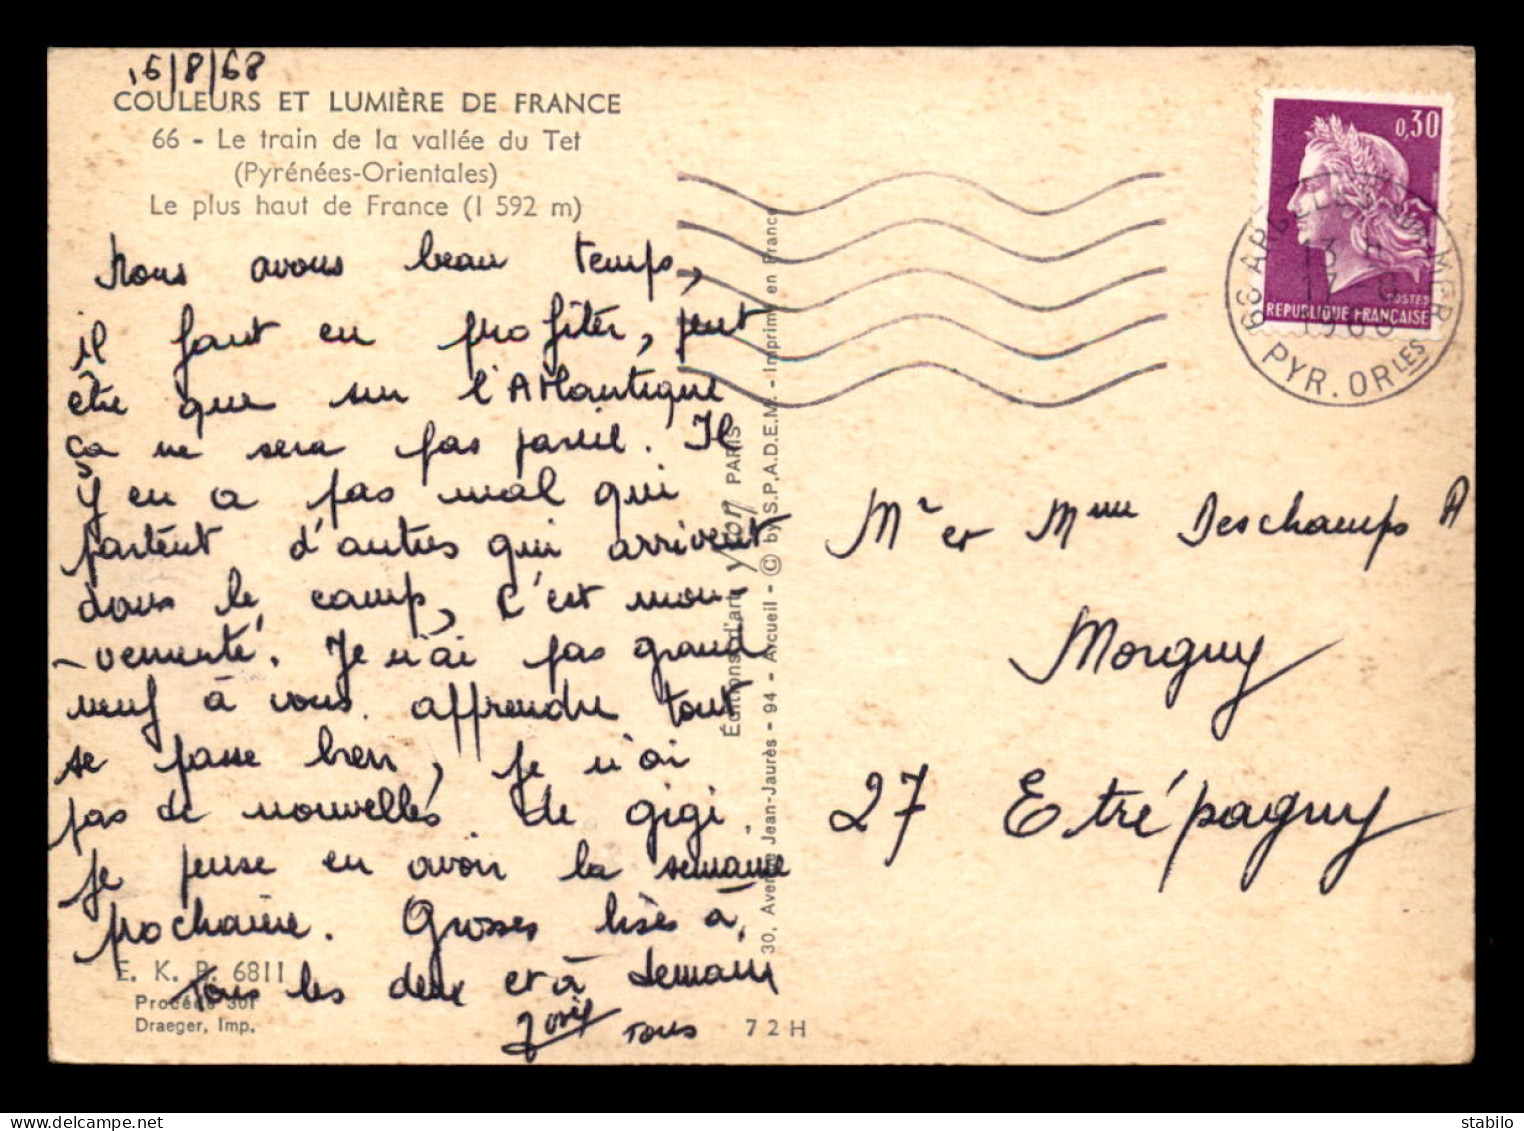 16/8/68
COULEURS ET LUMIÈRE DE FRANCE
66 - Le train de la vallée du Tet
(Pyrénées-Orientales)
Le plus haut de France (1 592 m)
Nous avons beau temps,
il faut en profiter, peut
être que sur l'Atlantique
ça ne sera pas pareil. Il
y en a pas mal qui
partent d'autres qui arrivent
dans le camp, c'est mou-
-vementé. Je n'ai pas grand
neuf à vous apprendre tout
se passe bien, je n'ai
pas de nouvelles de gigi
je pense en avoir la semaine
prochaine. Grosses bises à
Tous les deux et à
Tous
E. K. B. 6811
Procédé 301
Draeger, Imp.
72H
Éditions d'art Yvon PARIS
30, Avenue Jean-Jaurès - 94 - Arcueil - © by S.P.A.D.E.M. - Imprimé en France
0,30
POSTES
REPUBLIQUE FRANÇAISE
66 ARGELES SUR MER
13 H
17-8
1968
PYR. ORLES
Mr et Mme Deschamps A
Morgny
27 Etrépagny
stabilo
delcampe.net